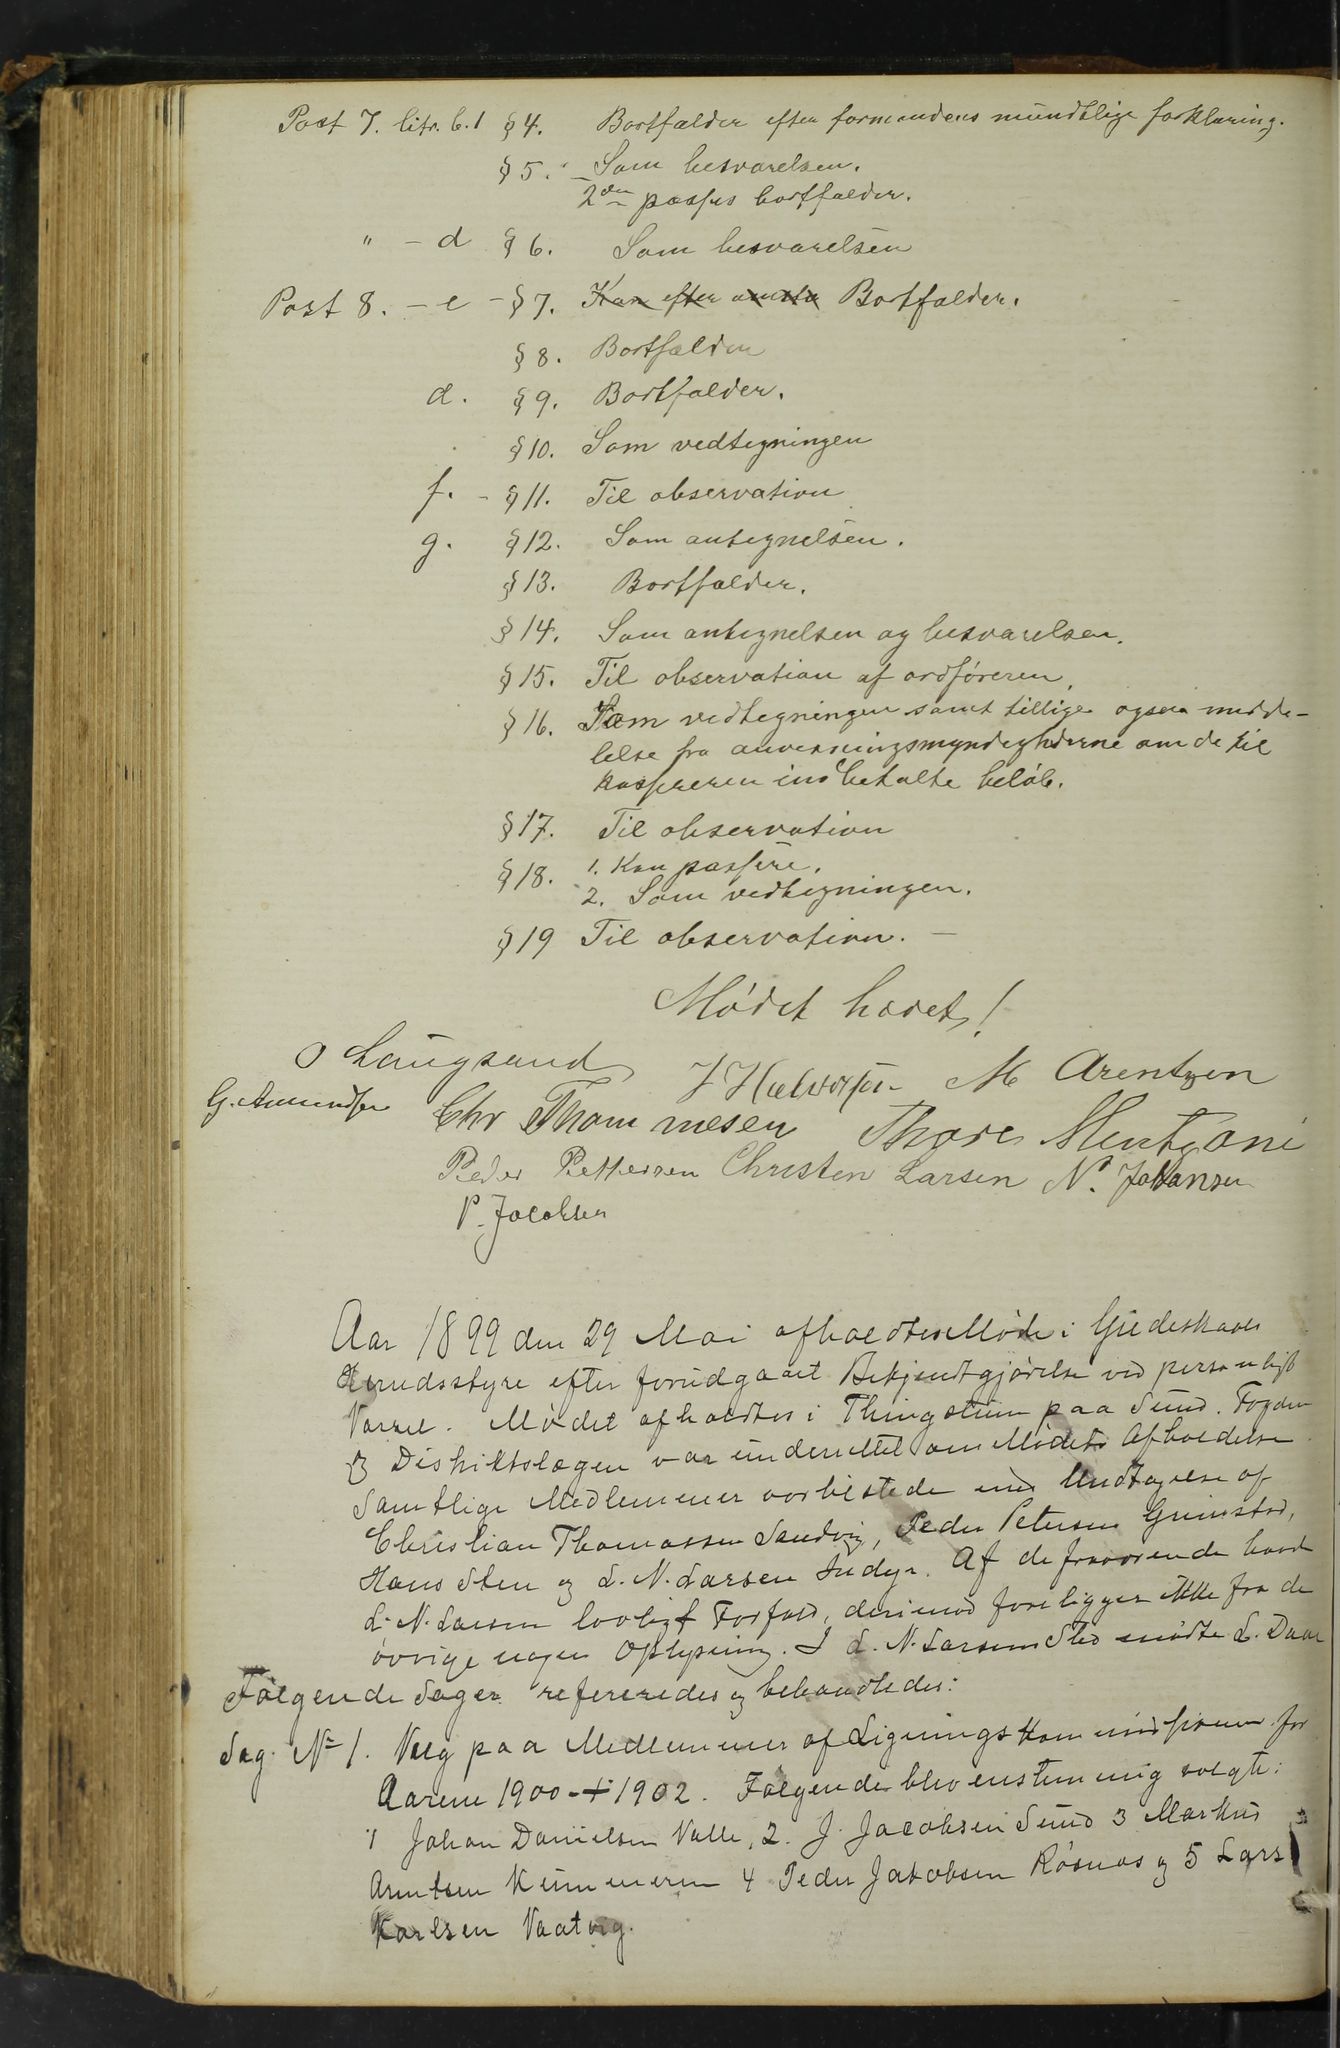 Post 7. litr. b.1 §4. Bortfalder efter formandens mundtlige forklaring.
§5. Som besvarelsen.
2den passus bortfalder.
" - d § 6. Som besvarelsen
Post 8. - c - §7. Kan efter Bortfalder.
§ 8. Bortfalder
d. § 9. Bortfalder.
§10. Som vedtegningen
f. - §11. Til observation
g. §12. Som antegnelsen.
§13. Bortfalder.
§14. Som antegnelsen og besvarelsen.
§15. Til observation af ordføreren.
§16. Som vedtegningen samt tillige ogsaa medde-
lelse fra anvisningsmyndighederne om de til
kassereren indbetalte beløb.
§17. Til observation
§18. 1. Kan passere.
2. Som vedtegningen.
§19 Til observation. -
Mødet hævet!
O Langsand J Halvorsen M Arentzen
G. Amundsen Chr Thommesen Thore Mentzoni
Peder Pettersen Christen Larsen N. Johansen
P. Jacobsen
Aar 1899 den 29 Mai afholdtes Møde i Gildeskaals
Herredsstyre efter forudgaaet Bekjendtgjørelse ved personligt
Varsel. Mødet afholdtes i Thingstuen paa Sund. Fogden
og Distriktslægen var underrettet om Mødets Afholdelse
Samtlige Medlemmer var tilstede med Undtagelse af
Christian Thomassen Sandvig, Peder Petersen Grimstad,
Hans Sten og L. N. Larsen Indyr. Af de fraværende havde
L. N. Larsen lovligt Forfald, derimod foreligger ikke fra de
øvrige nogen Oplysning. I L. N. Larsens Sted mødte L. Daae
Følgende Sager refereredes og behandledes:
Sag No 1. Valg paa Medlemmer af Ligningskommissionen for
Aarene 1900 - 1902. Følgende blev enstemmig valgte:
1 Johan Danielsen Valle, 2. J. Jacobsen Sund 3 Markus
Arentsen Kummeren 4 Peder Jakobsen Røsnæs og 5 Lars
Karlsen Vaatvig.